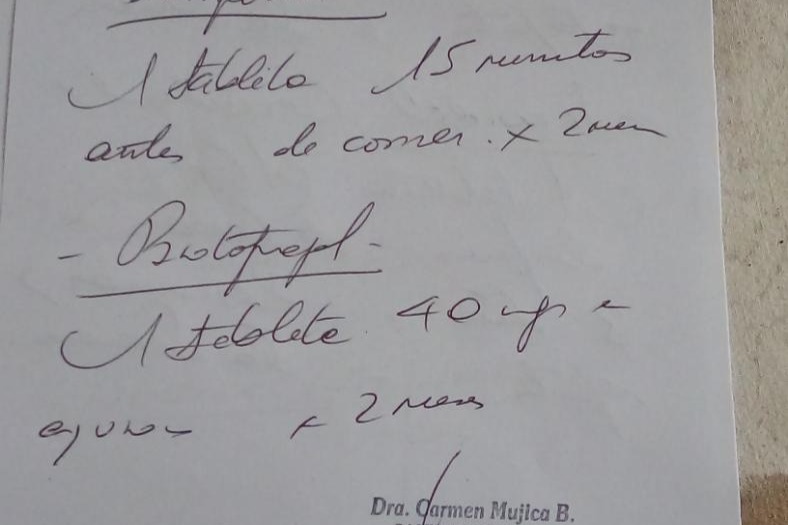 1 tableta 15 minutos
antes de comer. x 2 mes
1 tableta 40 mg en
ayunas x 2 meses
Dra. Carmen Mujica B.